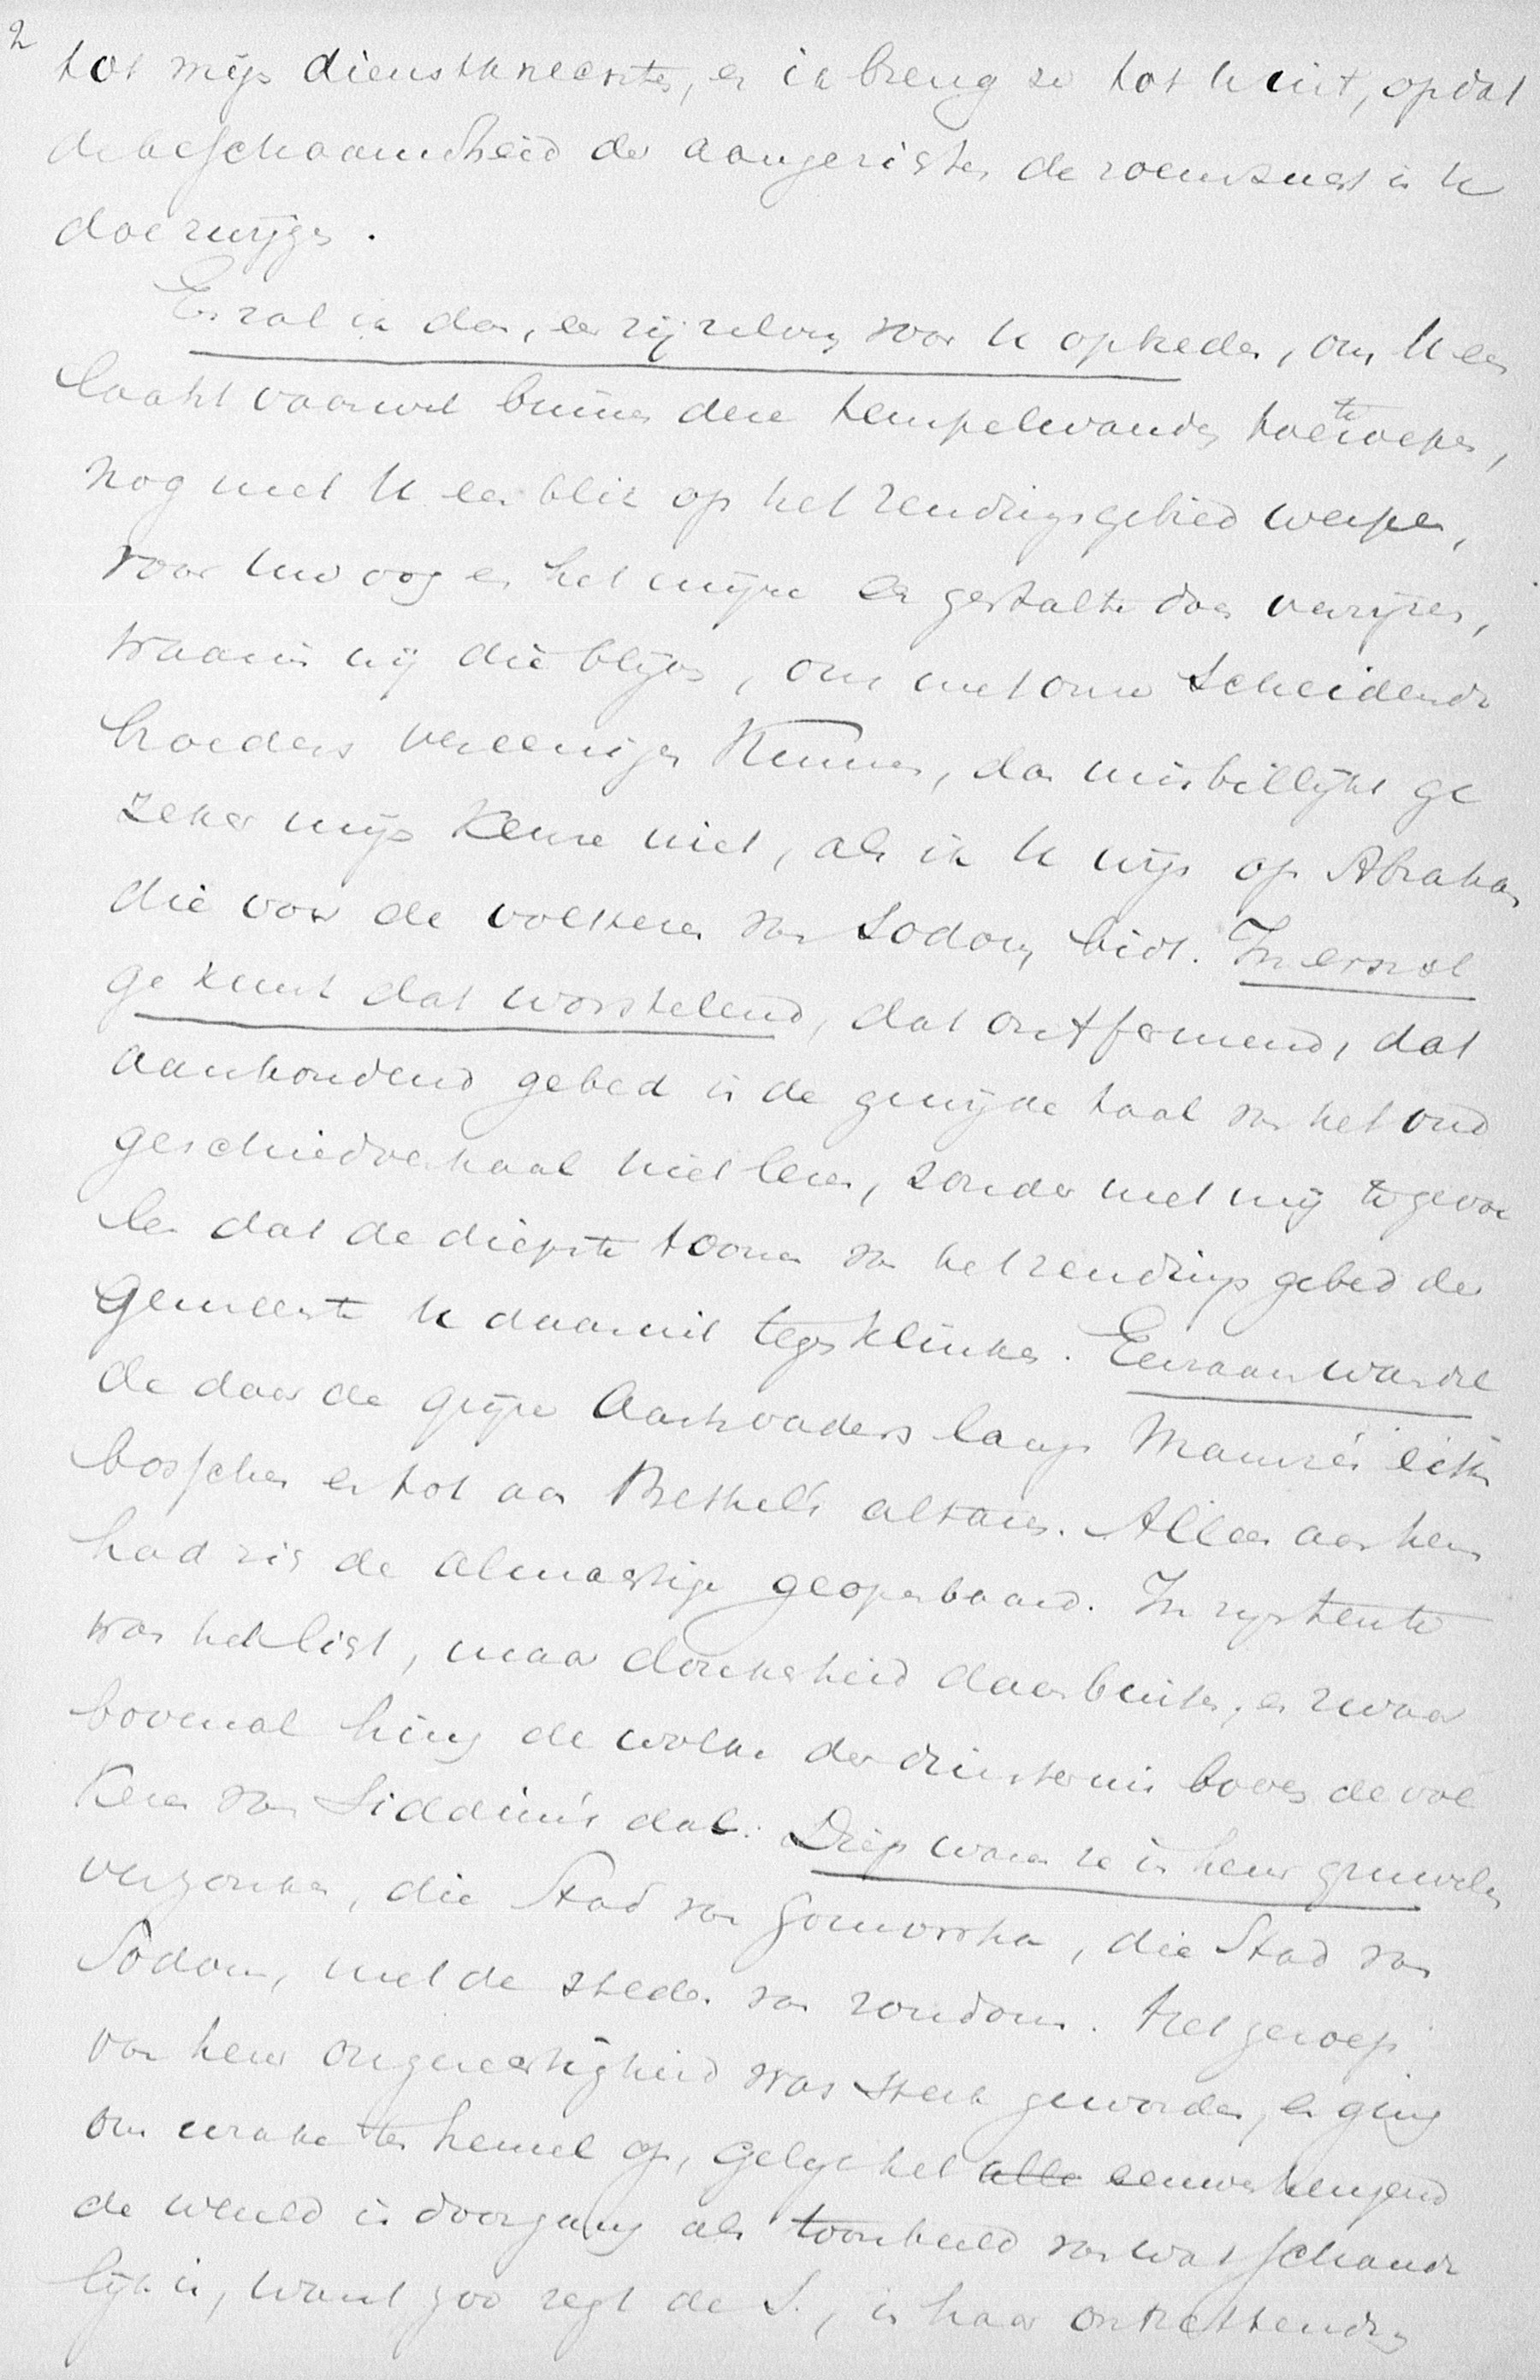 2
tot mijn dienstknechten, en ik breng ze tot U uit, opdat
de beschaamdheid der aangerichte de roemzucht in U
doe zwijgen.
En zal ik dan, eer zij zelven voor U optreden, om U een
laatst vaarwel binnen deze tempelwanden toe te roepen,
nog met U een blik op het zendingsgebied werpen,
voor uw oog en het mijne een gestalte doen verrijzen,
waarin wij die blijven, ons met onze scheidende
broeders vereenigen kunnen, dan misbillijkt ge
zeker mijn keuze niet, als ik U wijs op Abraham
die voor de volkeren van Sodom bidt. Immers niet
ge kunt dat worstelend, dat ontfermend, dat
aanhoudend gebed in de gewijde taal van het oud
geschiedverhaal niet lezen, zonder met mij te gevoe
len dat de diepste toonen van het zendingsgebed der
Gemeente U daaruit tegenklinken. Eenzaam wandel
de daar de grijze Aartsvaders langs Mamré's eiken
bosschen en tot aan Bethel's altaren. Alleen aan hem
had zich de Almachtige geopenbaard. In zijn tente
was het licht, maar donkerheid daar buiten, en zwaar
bovenal hing de wolk der duisternis boven de vol
keren van Siddim's dal. Diep waren ze in hun gruwelen
verzonken, die Stad van Gomorrha, die Stad van
Sodom, met de steden van rondom. Het geroep
van hun ongerechtigheid was sterk geworden, en ging
om wrake ten hemel op, gelijk het alle eeuwen heugend
de wereld in doorgang als toonbeeld van wat schande
lijk is, want zoo zegt de S., in haar ontzettendheid